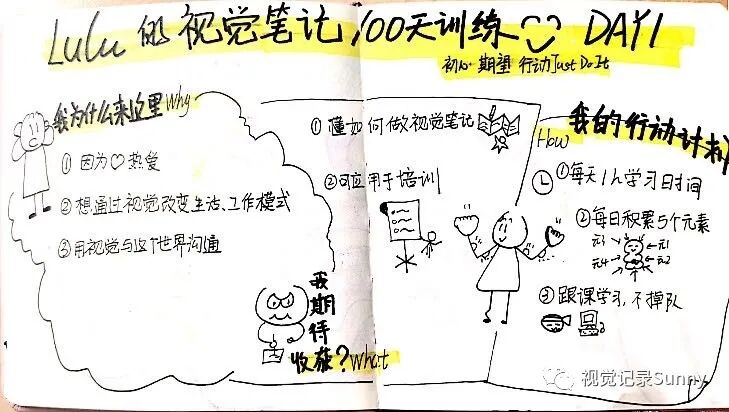 Lulu的视觉笔记100天训练 DAY1
初心 期望 行动Just Do It
我为什么来这里Why
①因为♡热爱
②想通过视觉改变生活、工作模式
③用视觉与这个世界沟通
我期待
收获?What
①懂如何做视觉笔记
②可应用于培训
How
我的行动计划
①每天1h学习时间
②每日积累5个元素
元3
元1
元4
元2
③跟课学习,不掉队
视觉记录Sunny